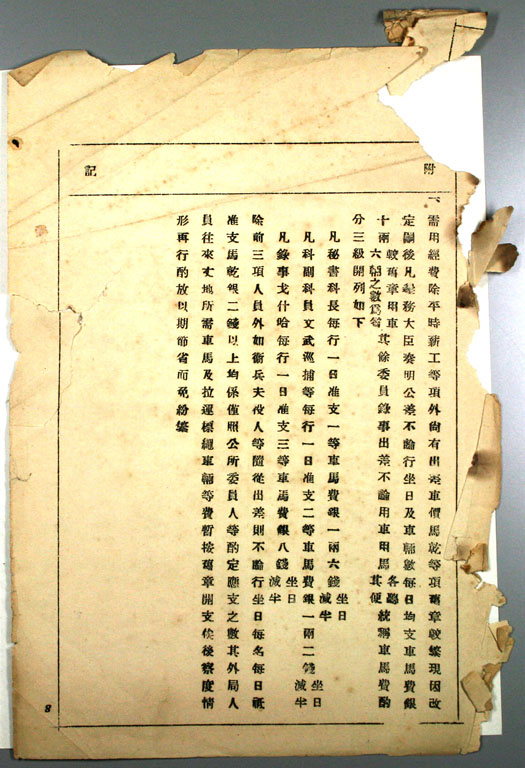 附記
一、需用經費除平時薪工等項外尙有出差車價馬乾等項舊章較繁現因改
定嗣後凡墾務大臣奏明公差不論行坐日及車輛數每日均支車馬費銀
十兩較舊章用車六輛之數爲省其餘委員錄事出差不論用車用馬各聽其便統稱車馬費酌
分三級開列如下
凡秘書科長每行一日准支一等車馬費銀一兩六錢坐日減半
凡科副科員文武巡捕等每行一日准支二等車馬費銀一兩二錢坐日減半
凡錄事戈什哈每行一日准支三等車馬費銀八錢坐日減半
除前三項人員外如衞兵夫役人等隨從出差則不論行坐日每名每日祇
准支馬乾銀二錢以上均係僅照公所委員人等酌定應支之數其外局人
員往來丈地所需車馬及拉運標繩車輛等費暫按舊章開支俟後察度情
形再行酌放以期節省而免紛繁
8